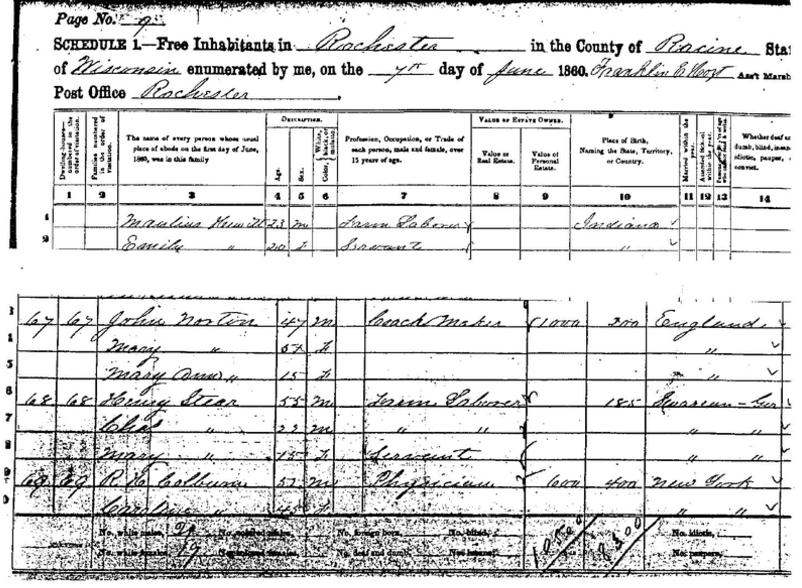 Page No. 9
SCHEDULE 1.—Free Inhabitants in Rochester in the County of Racine Sta
of Wisconsin enumerated by me, on the 7th day of June 1860. Franklin E Hoyt Ass't Marsh
Post Office Rochester.
Dwelling-houses—numbered in the order of visitation.
Families numbered in the order of visitation.
The name of every person whose usual place of abode on the first day of June, 1860, was in this family
DESCRIPTION.
Age.
Sex.
Color, White, black, or mulatto.
Profession, Occupation, or Trade of each person, male and female, over 15 years of age.
VALUE OF ESTATE OWNED.
Value of Real Estate.
Value of Personal Estate.
Place of Birth, Naming the State, Territory, or Country.
Married within the year.
Whether deaf and dumb, blind, insane, idiotic, pauper, or convict.
1 2 3 4 5 6 7 8 9 10 11 12 13 14
1 23 m Farm Laborer Indiana
2 Emily " 20 f Servant "
3 67 67 John Norton 47 m Coach Maker 1000 200 England
4 Mary " 52 f "
5 Mary Ann " 15 f "
6 68 68 Henry Stear 55 m Farm Laborer 185
7 Chas " 22 m " " " "
8 Mary " 15 f Servant " "
9 69 69 R H Colburn 52 m Physician 600 400 New York
0 Caroline " 45 f " "
No. white males, No. colored males, No. foreign born, No. blind, No. idiotic,
No. white females, 19 No. colored females, No. deaf and dumb, No. insane, No. paupers,